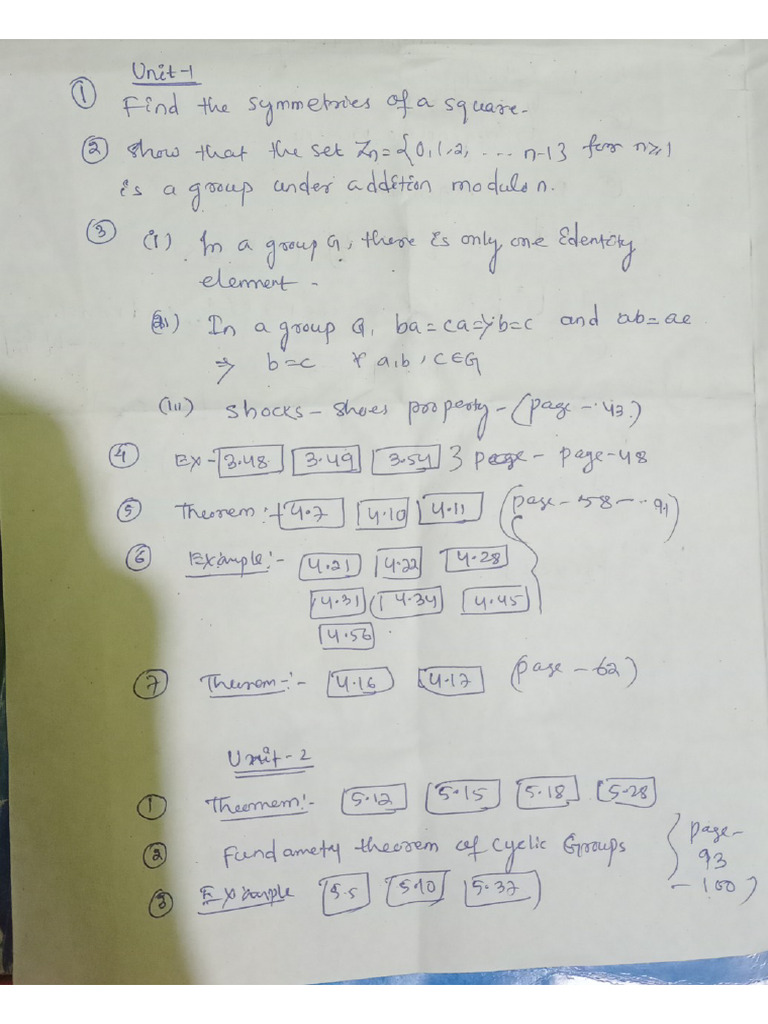 Unit-1
① Find the symmetries of a square.
② Show that the set Zn = {0,1,2, .... n-1} for n≥1
is a group under addition modulo n.
③ (i) In a group G, there is only one Identity
element.
(ii) In a group G, ba = ca => b=c and ab = ac
=> b=c ∀ a,b,c∈G
(iii) Shocks - Shoes property - (page - 43)
④ Ex - 3.48 3.49 3.54 } page - page-48
⑤ Theorem :- 4.7 4.10 4.11 (page - 58 - 91)
⑥ Example :- 4.21 4.22 4.28
4.31 4.34 4.45
4.56
⑦ Theorem :- 4.16 4.17 (page - 62)
Unit - 2
① Theorem :- 5.12 5.15 5.18 5.28
② Fundamety theorem of cyclic Groups } page - 93 - 100)
③ Example 5.5 5.10 5.37